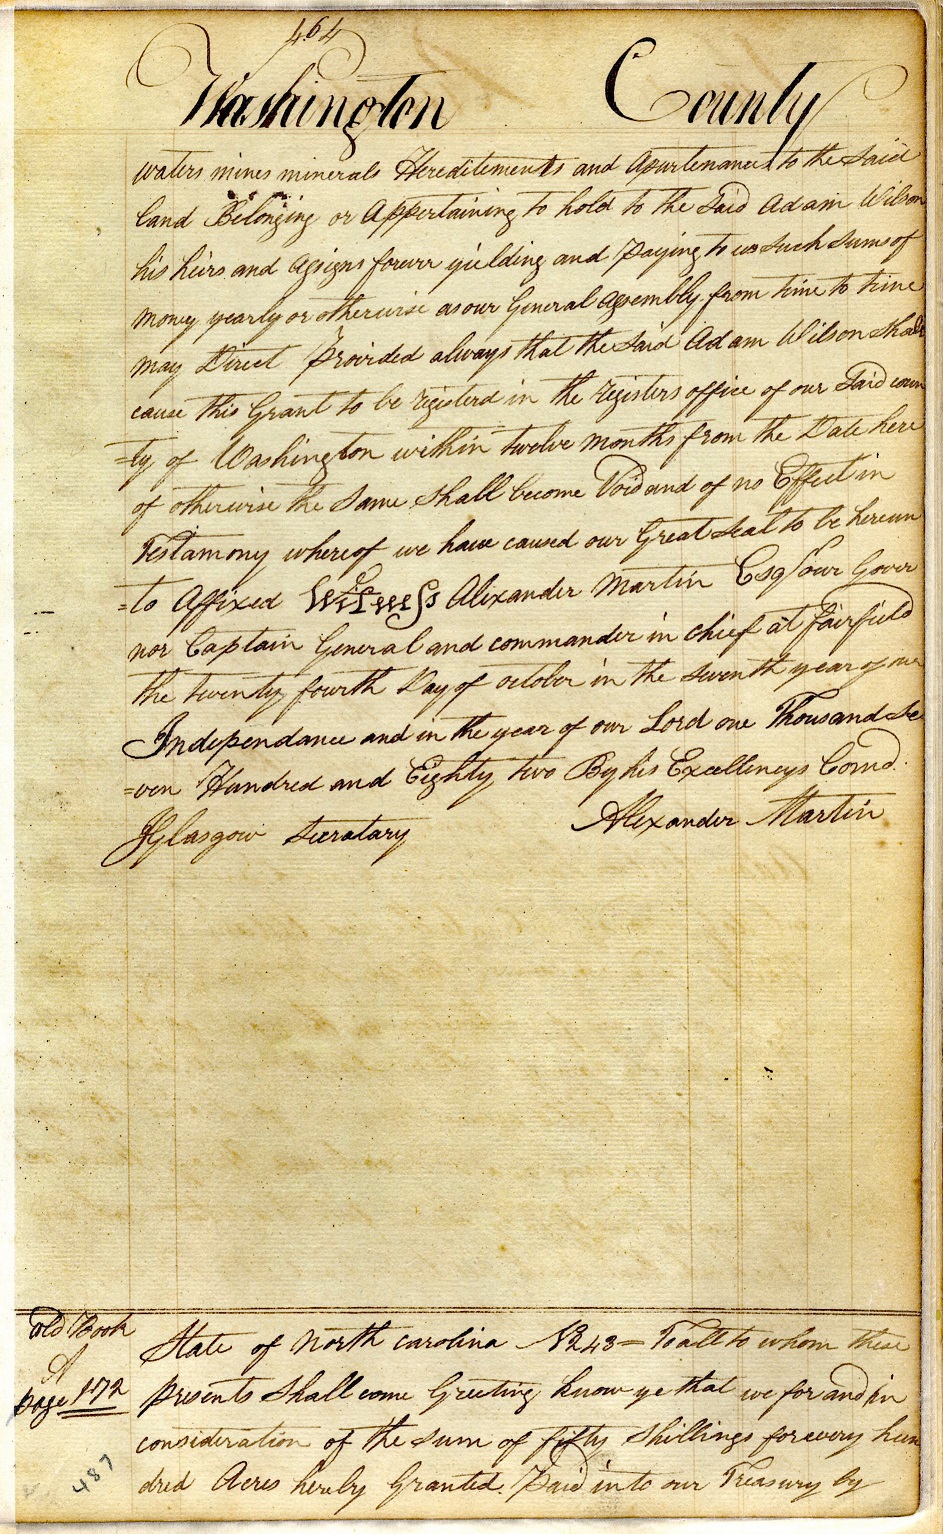 464
Washington County
waters mines minerals Hereditements and Apurtenances to the Said
land Belonging or Appertaining to hold to the Said Adam Wilson
his heirs and Assigns forever yielding and Paying to us such Sums of
money yearly or otherwise as our General Assembly from time to time
may Direct Provided always that the Said Adam Wilson Shall
cause this Grant to be registerd in the registers office of our Said coun
=ty of Washington within twelve months from the Date here
of otherwise the Same Shall become Void and of no Effect in
Testamony whereof we have caused our Great Seal to be hereun
=to Affixed Witness Alexander Martin Esqr our Gover
nor Captain General and commander in chief at fairfield
the twenty fourth Day of october in the Seventh year of our
Independance and in the year of our Lord one Thousand Se
=ven Hundred and Eighty two By his Excellencys Comd.
JGlasgow Secratary Alexander Martin
old Book
A
page 172
487
State of North carolina No 243= To all to whom these
presents Shall come Greeting know ye that we for and in
consideration of the Sum of fifty Shillings for every hun
dred Acres hereby Granted. Paid in to our Treasury by